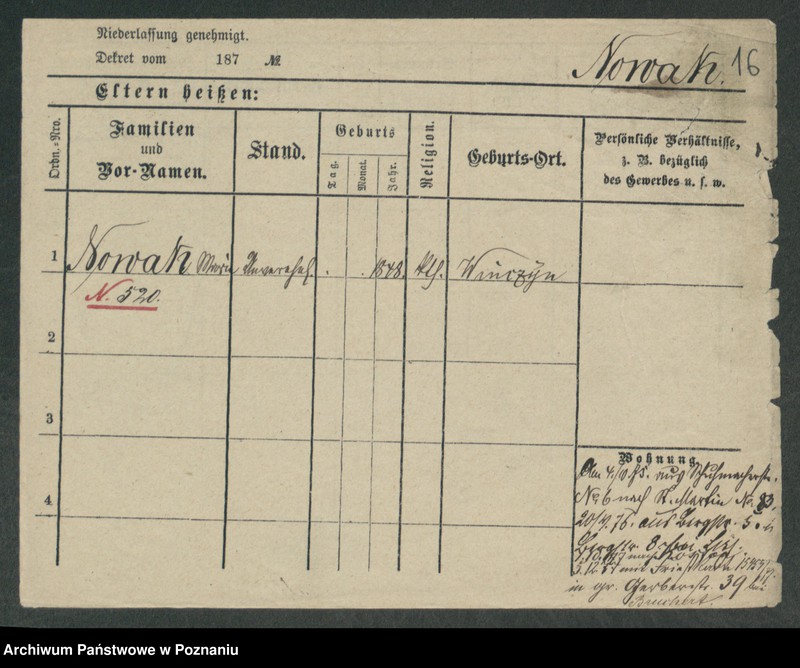 Niederlassung genehmigt.
Dekret vom 187 №
Nowak. 16
Eltern heißen:
Ordn.-Nro.
Familien und Vor-Namen.
Stand.
Geburts
Tag.
Monat.
Jahr.
Religion.
Geburts-Ort.
Persönliche Verhältnisse, z. B. bezüglich des Gewerbes u. s. w.
1 Nowak Maria Unverehel. . . 1848. kth. Winczyn
N. 520.
2
3
4
Wohnung
Am 4/10 75. aus Schuhmacherstr.
No 6 nach St. Martin No.
20/4. 76. aus Bergstr. 5.
Bergstr. 8
3.12
in gr. Gerberstr. 39 bei